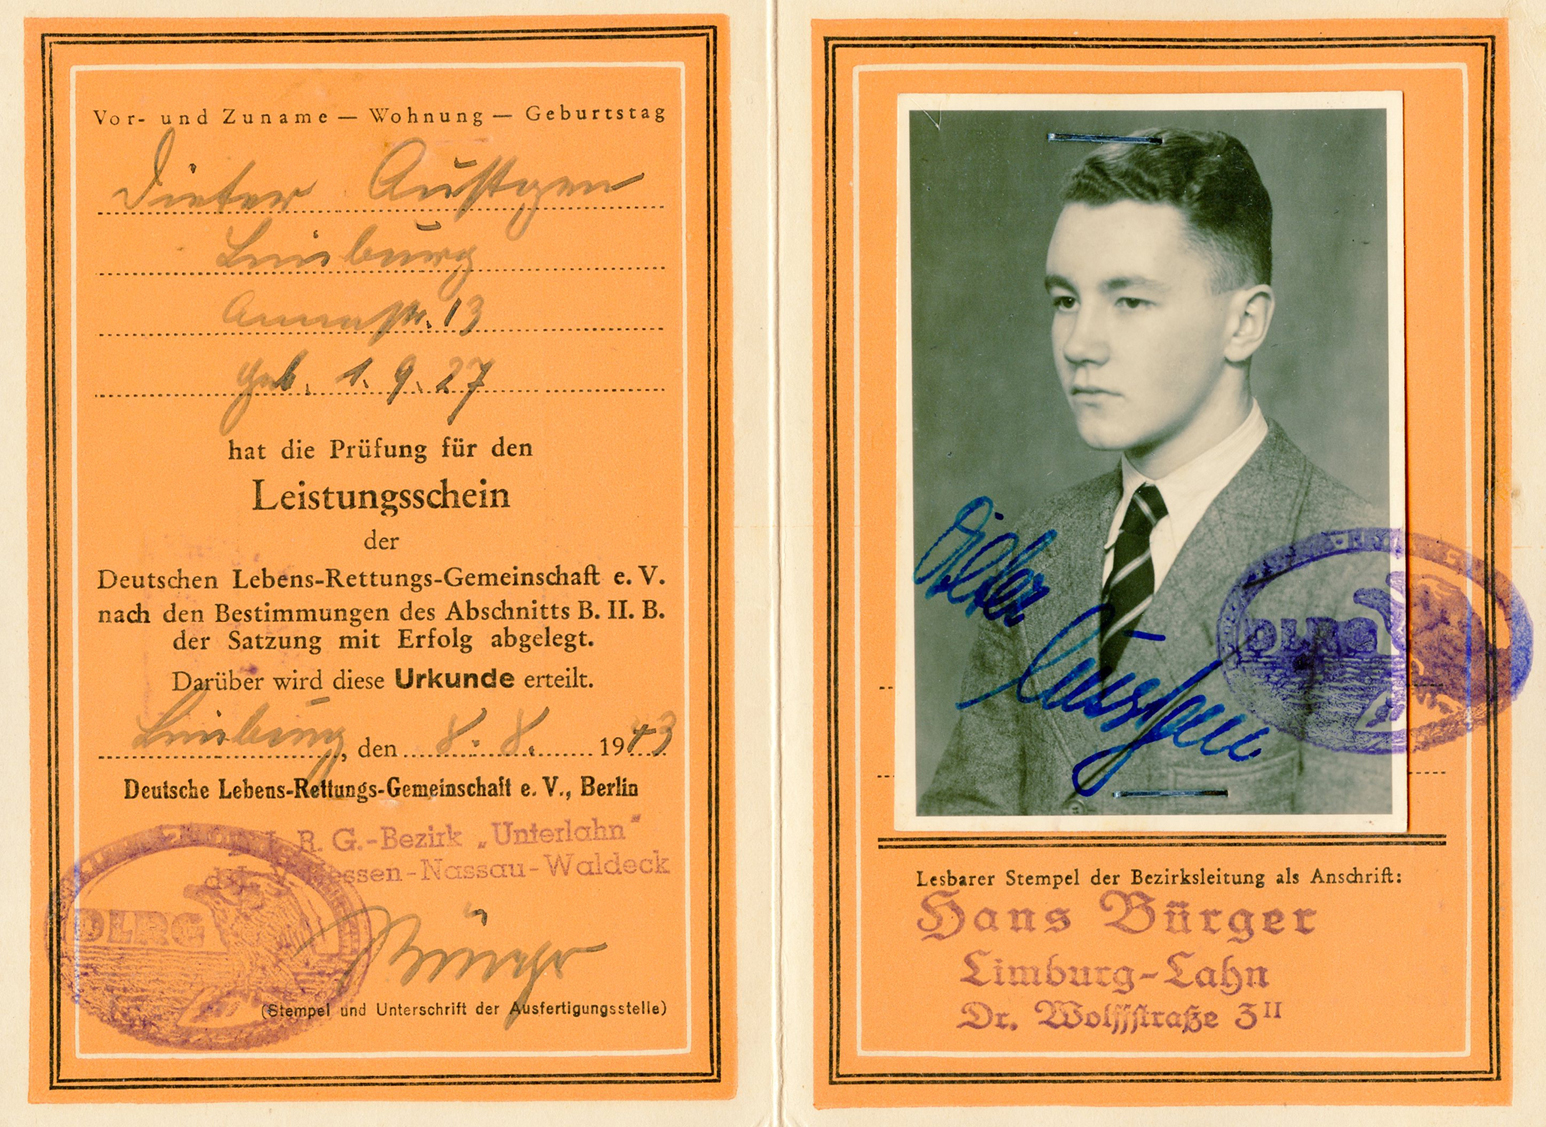 Vor- und Zuname — Wohnung — Geburtstag
Dieter Austgen
Limburg
Annastr. 13
geb. 1.9.27
hat die Prüfung für den
Leistungsschein
der
Deutschen Lebens-Rettungs-Gemeinschaft e. V.
nach den Bestimmungen des Abschnitts B. II. B.
der Satzung mit Erfolg abgelegt.
Darüber wird diese Urkunde erteilt.
Limburg, den 8. 8. 1943
Deutsche Lebens-Rettungs-Gemeinschaft e. V., Berlin
L. R. G.-Bezirk „Unterlahn"
Hessen-Nassau-Waldeck
DLRG
Bürger
(Stempel und Unterschrift der Ausfertigungsstelle)
Dieter
Austgen
DLRG
Lesbarer Stempel der Bezirksleitung als Anschrift:
Hans Bürger
Limburg-Lahn
Dr. Wolffstraße 3 II